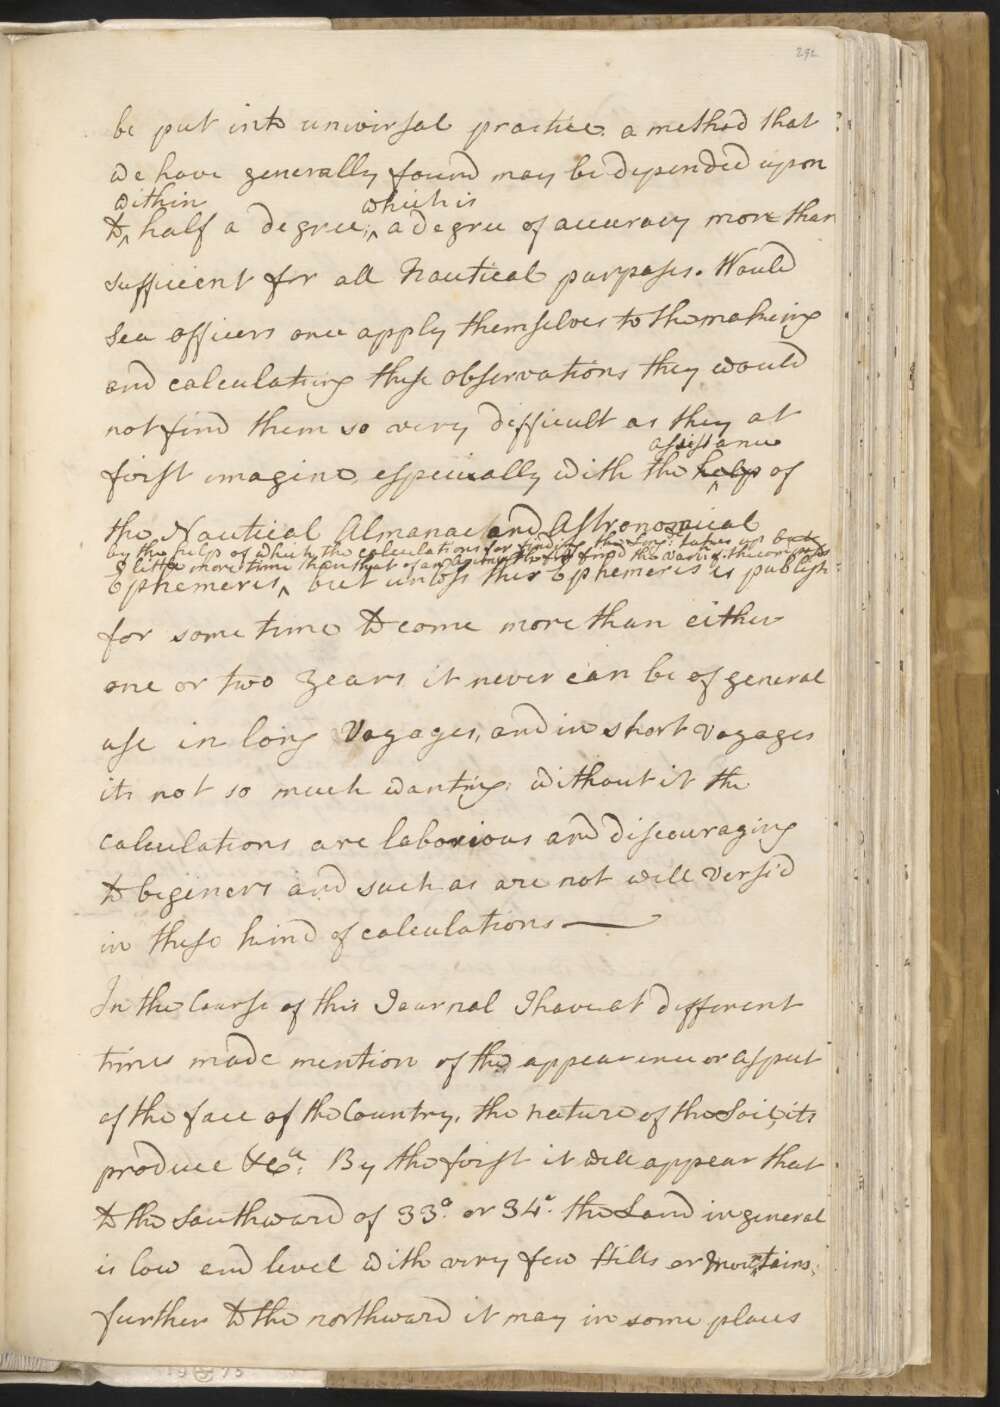 292
be put into universal practice. a method that
we have generally found may be depended upon
within which is
to half a degree, a degree of accuracy more than
sufficient for all Nautical purposes. Would
Sea officers once apply themselves to the making
and calculating these observations they would
not find them so very difficult as they at
assistance
first imagine, especially with the help of
the Nautical Almanac and Astronomical
by the help of which the calculations for finding the Long: takes up but
little more time than that of an to find the Varn. of the compass
Ephemeris, but unless this Ephemeris is publish'
for some time to come more than either
one or two years it never can be of general
use in long Voyages, and in short Voyages
its not so much wanting: without it the
Calculations are laborious and discouraging
to beginers and such as are not well vers'd
in these kind of calculations —
In the Course of this Journal I have at different
times made mention of the appearence or aspect
of the face of the Country, the nature of the Soil, its
produce &Ca. By the first it will appear that
to the Southward of 33° or 34° the Land in general
is low and level with very few Hills or Mountains,
further to the northward it may in some places